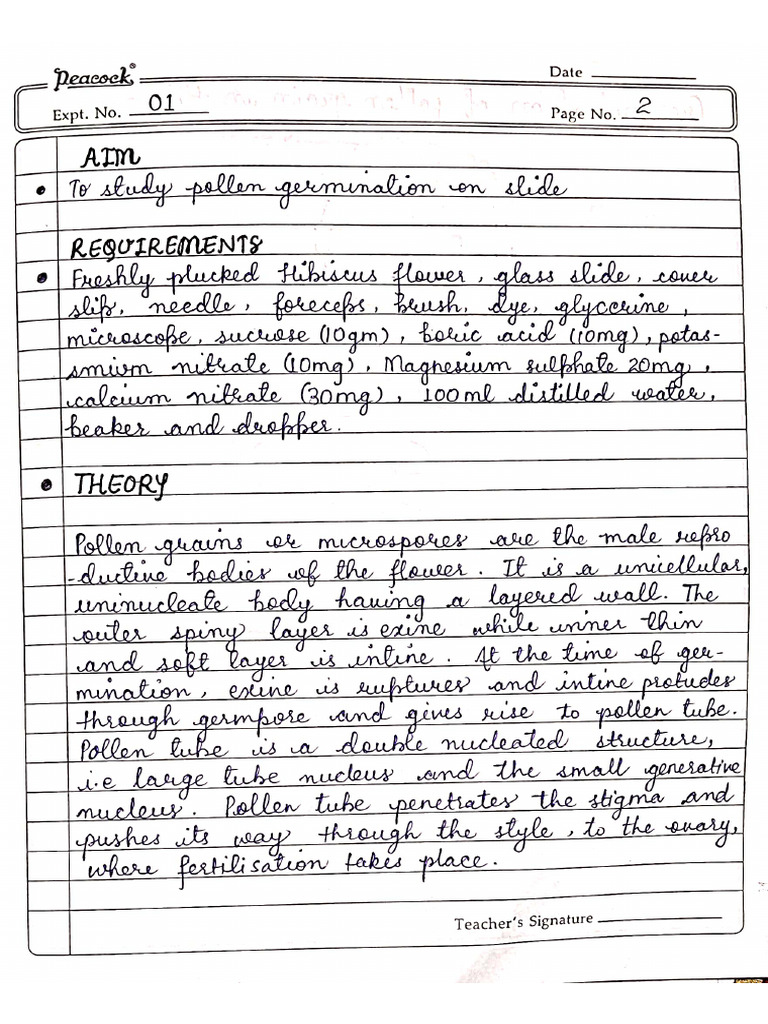 Peacock®
Date
Expt. No. 01
Page No. 2
AIM
• To study pollen germination on slide
REQUIREMENTS
• Freshly plucked Hibiscus flower, glass slide, cover
slip, needle, foreceps, brush, dye, glycerine,
microscope, sucrose (10gm), boric acid (10mg), potas-
smium nitrate (10mg), Magnesium sulphate 20mg,
calcium nitrate (30mg), 100ml distilled water,
beaker and dropper.
• THEORY
Pollen grains or microspores are the male repro
-ductive bodies of the flower. It is a unicellular,
uninucleate body having a layered wall. The
outer spiny layer is exine while inner thin
and soft layer is intine. At the time of ger-
mination, exine is ruptures and intine protudes
through germpore and gives rise to pollen tube.
Pollen tube is a double nucleated structure,
i.e large tube nucleus and the small generative
nucleus. Pollen tube penetrates the stigma and
pushes its way through the style, to the ovary,
where fertilisation takes place.
Teacher's Signature